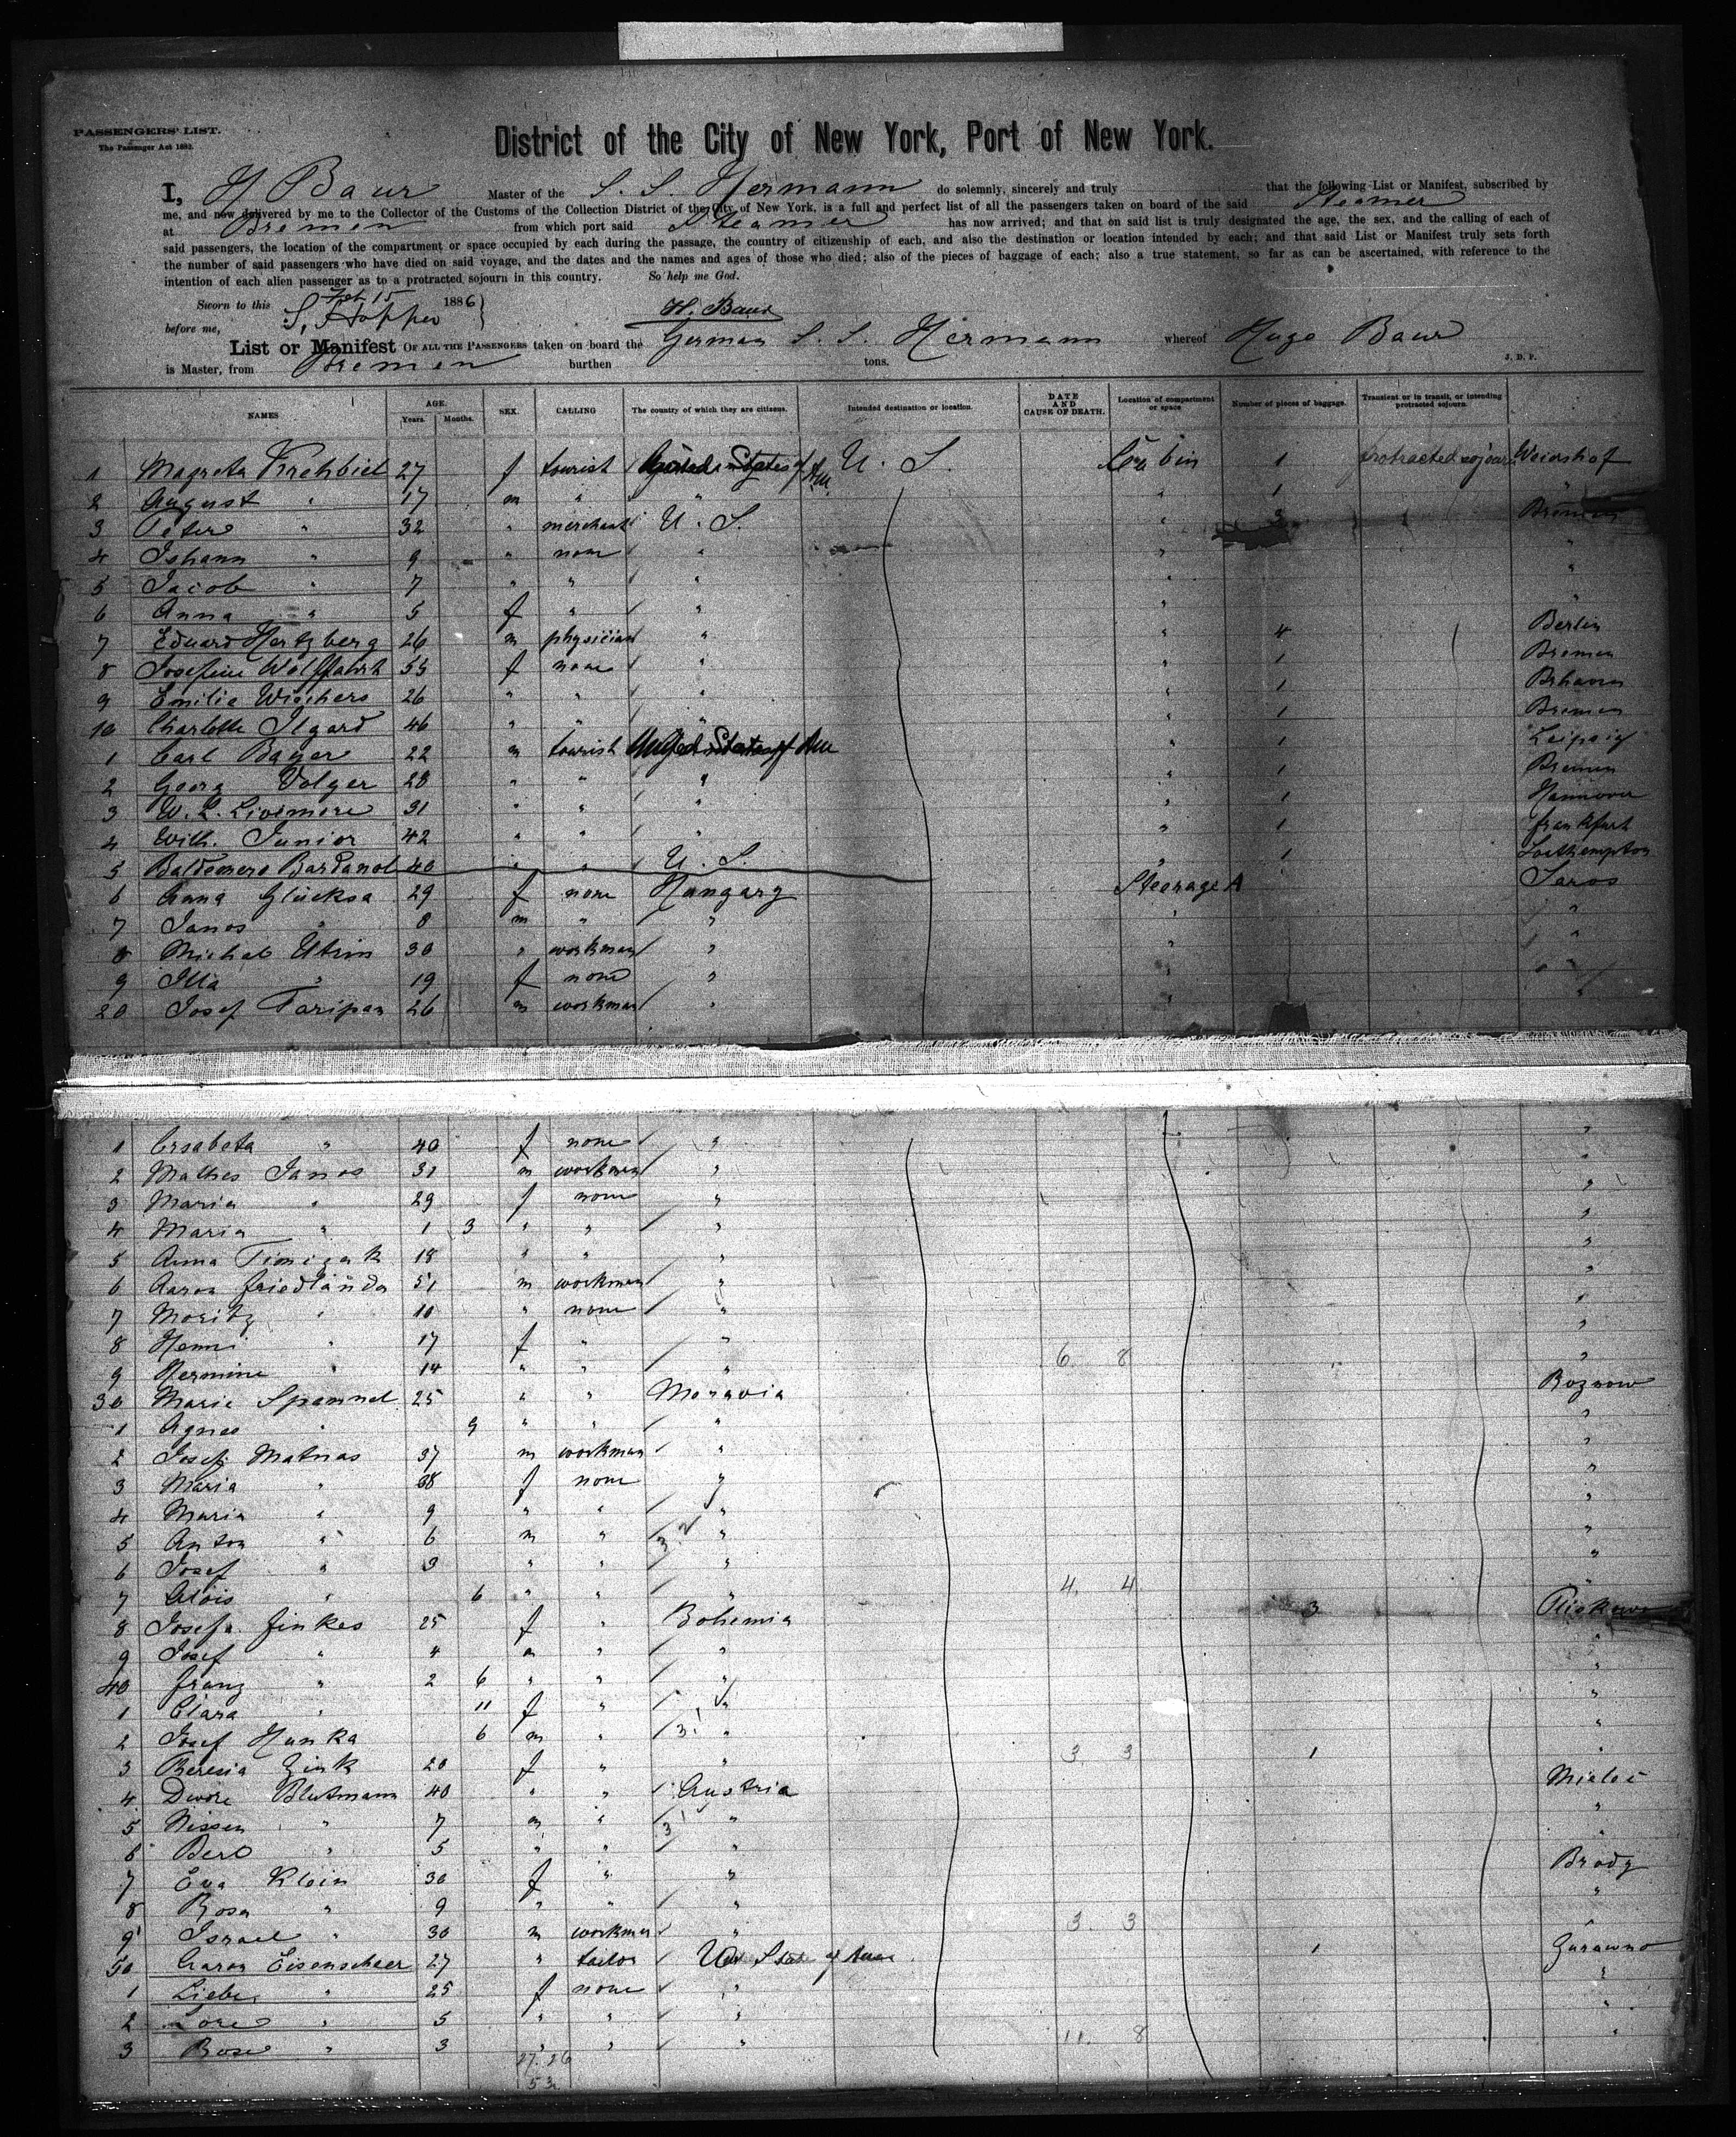 PASSENGERS' LIST.
The Passenger Act 1882.
District of the City of New York, Port of New York.
I, H Baur Master of the S. S. Hermann do solemnly, sincerely and truly that the following List or Manifest, subscribed by
me, and now delivered by me to the Collector of the Customs of the Collection District of the City of New York, is a full and perfect list of all the passengers taken on board of the said Steamer
at Bremen from which port said Steamer has now arrived; and that on said list is truly designated the age, the sex, and the calling of each of
said passengers, the location of the compartment or space occupied by each during the passage, the country of citizenship of each, and also the destination or location intended by each; and that said List or Manifest truly sets forth
the number of said passengers who have died on said voyage, and the dates and the names and ages of those who died; also of the pieces of baggage of each; also a true statement, so far as can be ascertained, with reference to the
intention of each alien passenger as to a protracted sojourn in this country. So help me God.
Sworn to this Feb 15 1886
before me, S. Hopper H. Baur
List or Manifest OF ALL THE PASSENGERS taken on board the German S. S. Hermann whereof Hugo Baur
is Master, from Bremen burthen tons. J. D. P.
NAMES AGE. Years. Months. SEX. CALLING The country of which they are citizens. Intended destination or location. DATE AND CAUSE OF DEATH. Location of compartment or space Number of pieces of baggage. Transient or in transit, or intending protracted sojourn.
1 Magreta Krehbiel 27 f tourist United States of Am U. S. Cabin 1 protracted sojourn Weierhof
2 August " 17 m " " " 1 "
3 Peter " 32 " merchant U. S. " 3 Bremen
4 Johann " 9 " none " " "
5 Jacob " 7 " " " " "
6 Anna " 5 f " " " "
7 Eduard Hertzberg 26 m physician " " 4 Berlin
8 Josefine Wolffahrt 55 f none " " 1 Bremen
9 Emilie Wiechers 26 " " " " 1 Brhaven
10 Charlotte Ilgard 46 " " " " 1 Bremen
1 Carl Bayer 22 m tourist United States of Am " 1 Leipzig
2 Georg Volger 28 " " " " 1 Bremen
3 W. L. Livemore 31 " " " " 1 Hannover
4 Wilh. Junior 42 " " " " 1 Frankfurt
5 Baldemero Bardanol 40 " " U. S. " 1 Southempton
6 Anna Glucksa 29 f none Hungary Steerage A Saros
7 Janos " 8 m " " " "
8 Michal Utrin 30 " workman " " "
9 Illa " 19 f none " " "
20 Josef Taripar 26 m workman " " "
1 Ersabeta " 40 f none " "
2 Mathes Janos 31 m workman " "
3 Maria " 29 f none " "
4 Maria " 1 3 " " " "
5 Anna Timizak 18 " " " "
6 Aaron Friedlända 51 m workman " "
7 Moritz " 10 " none " "
8 Henni " 17 f " " "
9 Hermine " 14 " " " 6 8 "
30 Marie Spannel 25 " " Moravia Roznow
1 Agnes " 9 " " " "
2 Josef Matuas 37 m workman " "
3 Maria " 38 f none " "
4 Maria " 9 " " " "
5 Anton " 6 m " " "
6 Josef " 3 " " " "
7 Alois " 6 " " " 4. 4 "
8 Josefa Finkes 25 f " Bohemia 3
9 Josef " 4 m " " "
40 Franz " 2 6 " " " "
1 Clara " 11 f " " "
2 Josef Hunka 6 m " 3 " "
3 Teresia Zink 20 f " " 3 3 1 "
4 Dwore Blutmann 40 " " Austria Mielec
5 Nissen " 7 m " 3 " "
6 Berl " 5 " " " "
7 Eva Klein 30 f " " Brody
8 Rosa " 9 " " " "
9 Israel " 30 m workman " 3. 3 "
50 Aaron Eisenscheer 27 " tailor Utd State of Am 1 Zurawno
1 Liebe " 25 f none " "
2 Lore " 5 " " " "
3 Rose " 3 " " " 11. 8 "
27. 26
53